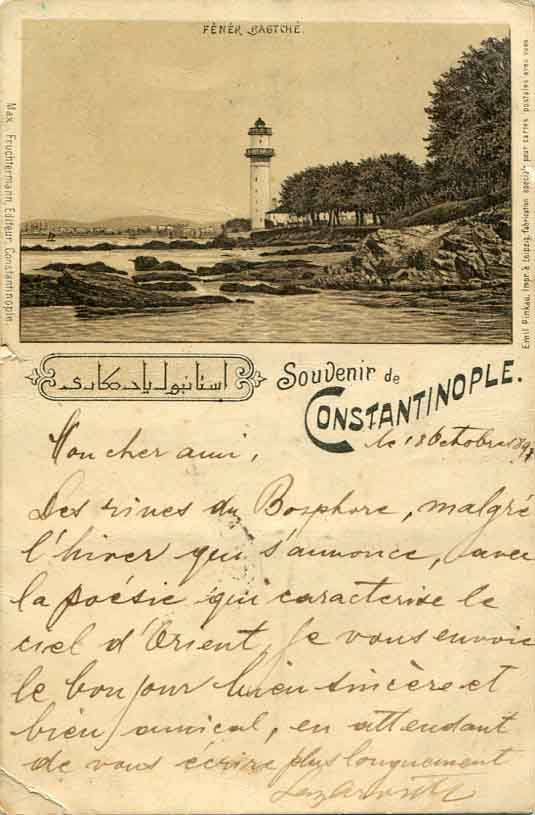 FÉNÉR BAGTCHÉ.
Max. Fruchtermann, Editeur, Constantinople.
Emil Pinkau, Impr. à Leipzig, fabrication spéciale pour cartes postales avec vues
استانبول يادكارى
Souvenir de
CONSTANTINOPLE.
le 18 Octobre 1897
Mon cher ami,
Des rives du Bosphore, malgré
l'hiver qui s'annonce, avec
la poésie qui caracterise le
ciel d'Orient, Je vous envoie
le bonjour bien sincère et
bien amical, en attendant
de vous écrire plus longuement